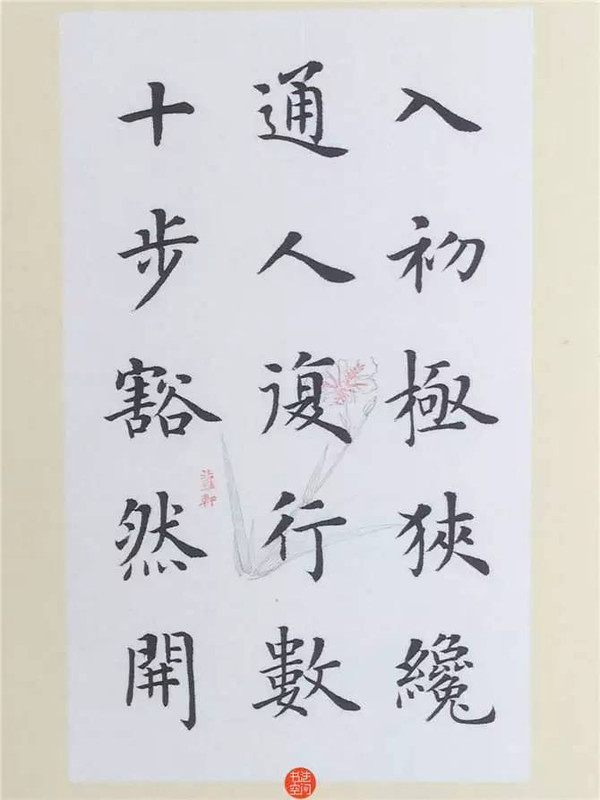 入初極狹纔
通人復行數
十步豁然開
书法空间